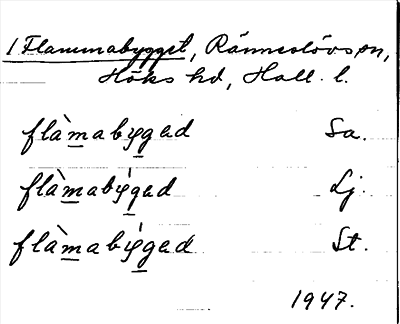 1 Flammabygget, Ränneslövs sn,
Höks hd, Hall. l.
flàmabyg̱ed Sa.
flàmabýg̱ed Lj.
flàmabýg̱ed St.
1947.